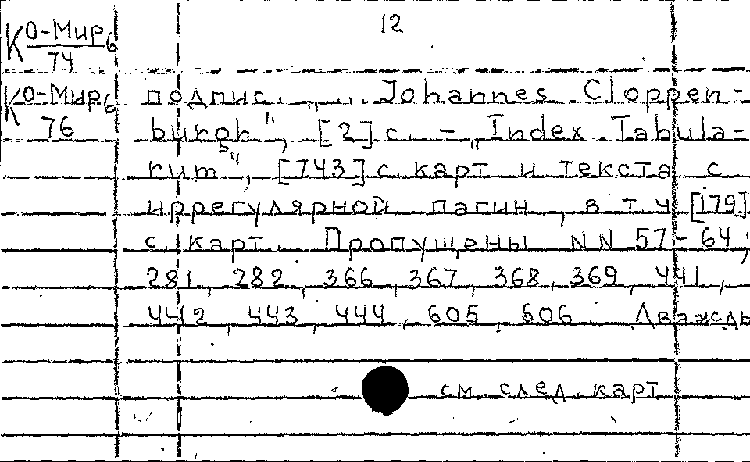 12
Ко-Мир6
74
Ко-Мир6
76
подпис. „ Johannes Cloppen-
burgh", [2] с. - „Index Tabula-
rum", [743] с. карт и текста с
иррегулярной пагин., в т.ч. [179]
с. карт. Пропущены NN 57-64,
281, 282, 366, 367, 368, 369, 441,
442, 443, 444, 605, 606. Дважды
см. след. карт.